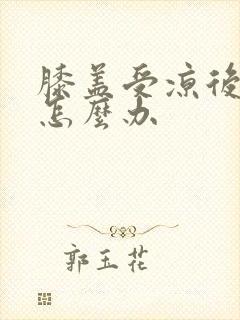 膝盖受凉後
怎麼办
郭玉花